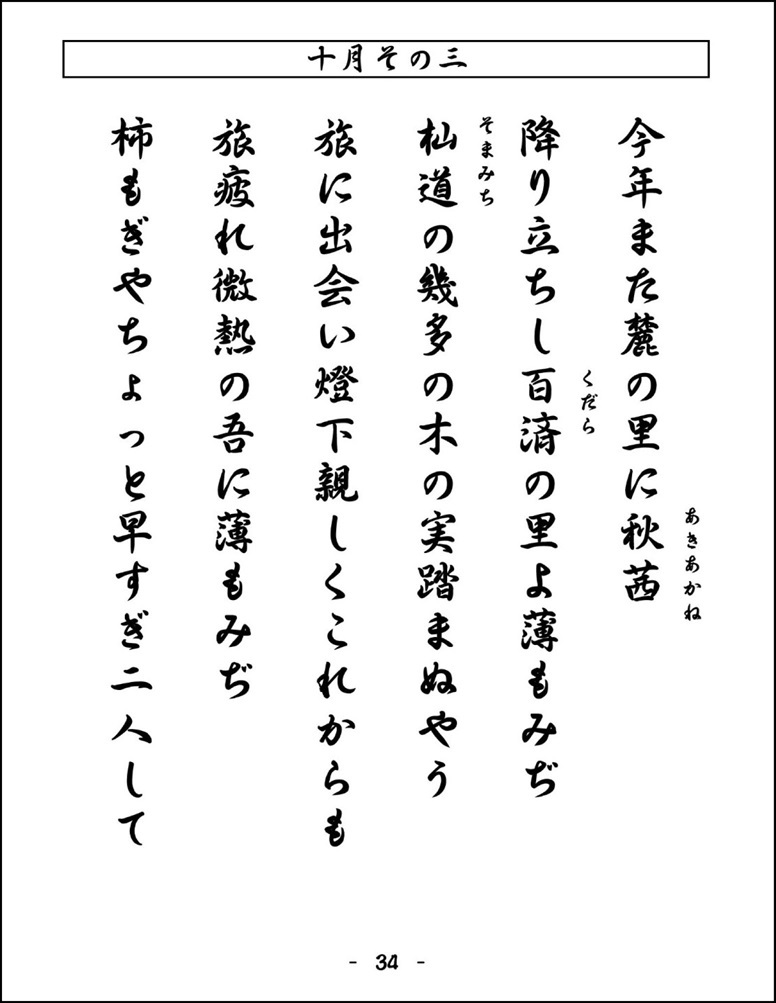 十月その三
今年また麓の里に秋茜
あきあかね
降り立ちし百済の里よ薄もみぢ
くだら
杣道の幾多の木の実踏まぬやう
そまみち
旅に出会い燈下親しくこれからも
旅疲れ微熱の吾に薄もみぢ
柿もぎやちょっと早すぎ二人して
- 34 -